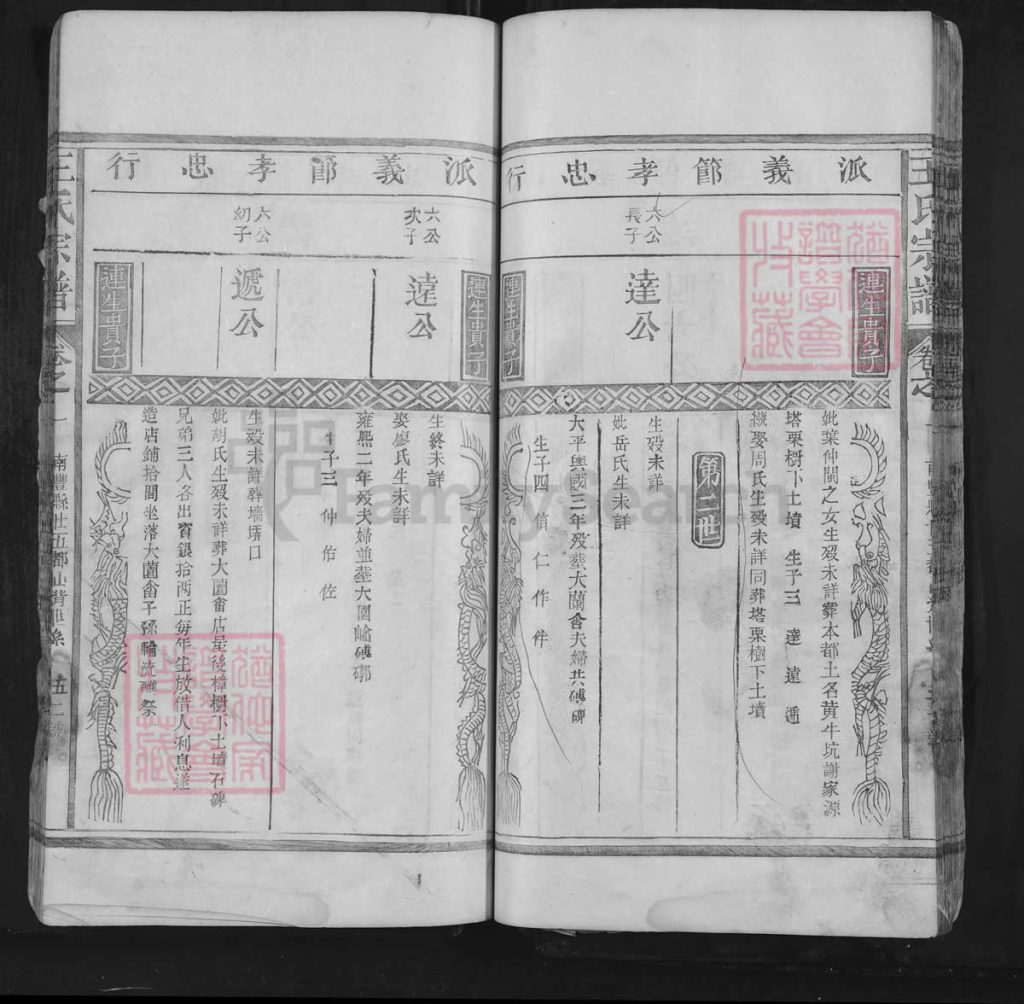 王氏宗譜
卷之一
派義節孝忠行
連生貴子
妣葉仲閩之女生殁未詳葬本都土名黄牛坑謝家源
塔栗樹下土墳 生子三 達 遠 遞
繼娶周氏生殁未詳同葬塔栗樹下土墳
第二世
六公長子
達公
生殁未詳
妣岳氏生未詳
大平興國三年殁葬大蘭畲夫婦共磚碑
生子四 信 仁 作 件
連生貴子
派義節孝忠行
連生貴子
六公次子
遠公
生終未詳
娶廖氏生未詳
雍熙二年殁夫婦並葬大園崳磚槨
生子三 仲 佑 佐
六公幼子
遞公
生殁未詳葬墻堘口
妣胡氏生殁未詳葬大園畲店最後樟樹下土墳石碑
兄弟三人各出賓銀拾两正每年生放借人利息遂
造店鋪拾間坐落大園畲子孫輪流醮祭
連生貴子
王氏宗譜
卷之一
南豐縣廿五都
五
猶他家譜學會
猶他家譜學會
FamilySearch